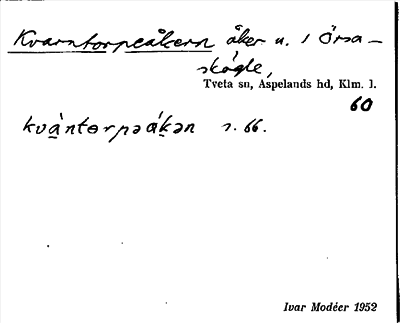 Kvarntorpeåkern åker n. 1 Örsa-
skógle,
Tveta sn, Aspelands hd, Klm. l.
60
kvàntɵrpəákən s. 66.
Ivar Modéer 1952